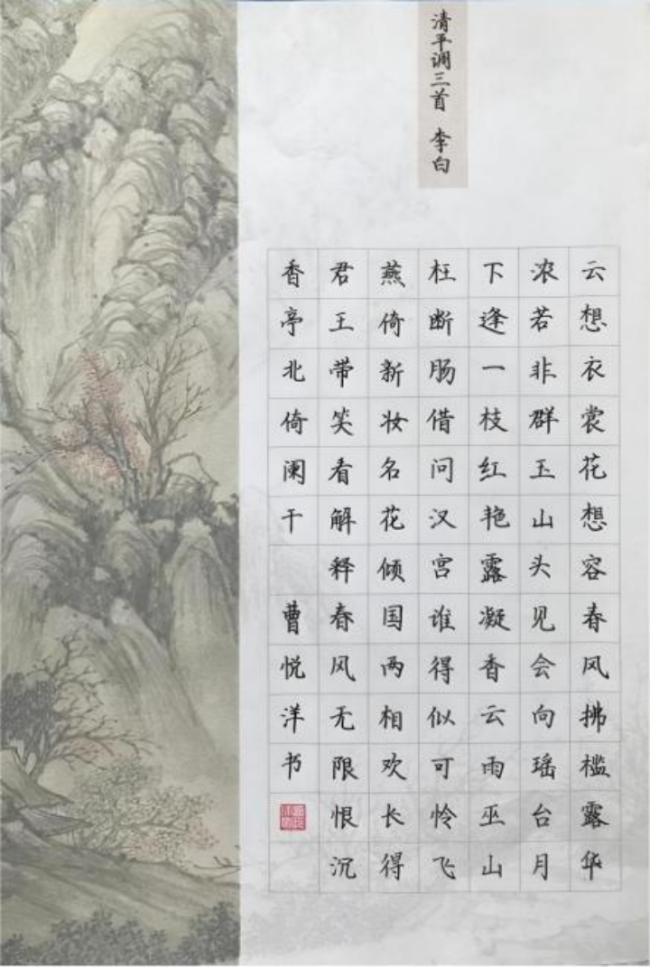 清平调三首 李白
云想衣裳花想容春风拂槛露华
浓若非群玉山头见会向瑶台月
下逢一枝红艳露凝香云雨巫山
枉断肠借问汉宫谁得似可怜飞
燕倚新妆名花倾国两相欢长得
君王带笑看解释春风无限恨沉
香亭北倚阑干 曹悦洋书